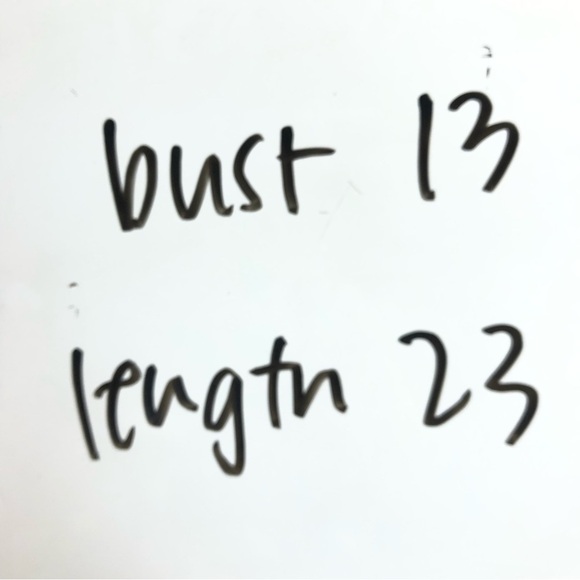 bust 13
length 23